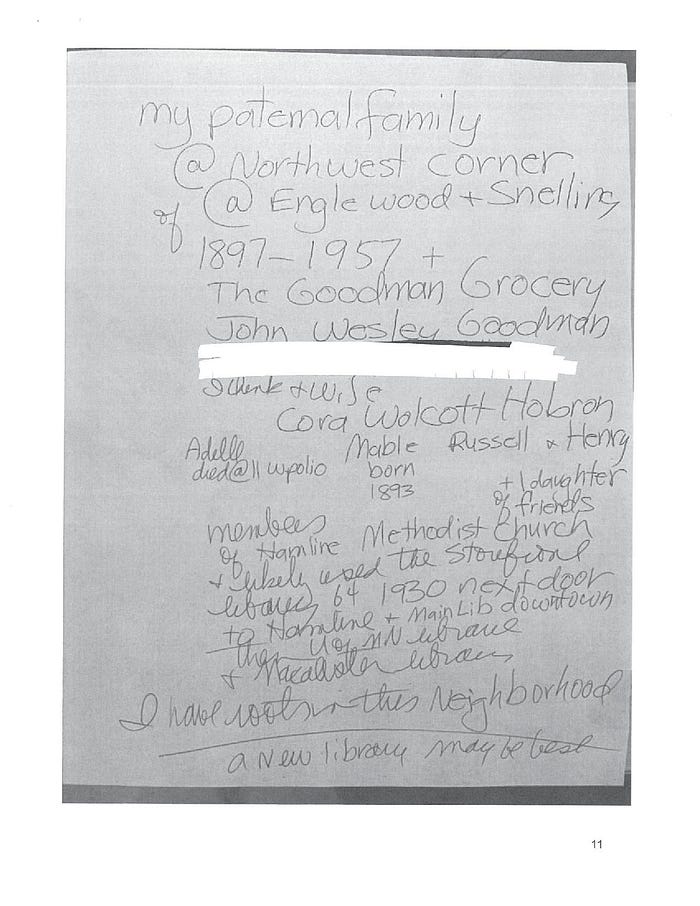 my paternal family
@ Northwest corner
of @ Englewood + Snelling
1897-1957 +
The Goodman Grocery
John Wesley Goodman
I think + wife
Cora Wolcott Hobron
Adelle Mable Russell & Henry
died @ 11 w polio born
1893 + 1 daughter
of friends
members
of Hamline Methodist Church
+ likely used the storefront
library b4 1930 next door
to Hamline + Main Lib downtown
then U of MN library
+ Macalester library
I have roots in this Neighborhood
a new library may be best
11